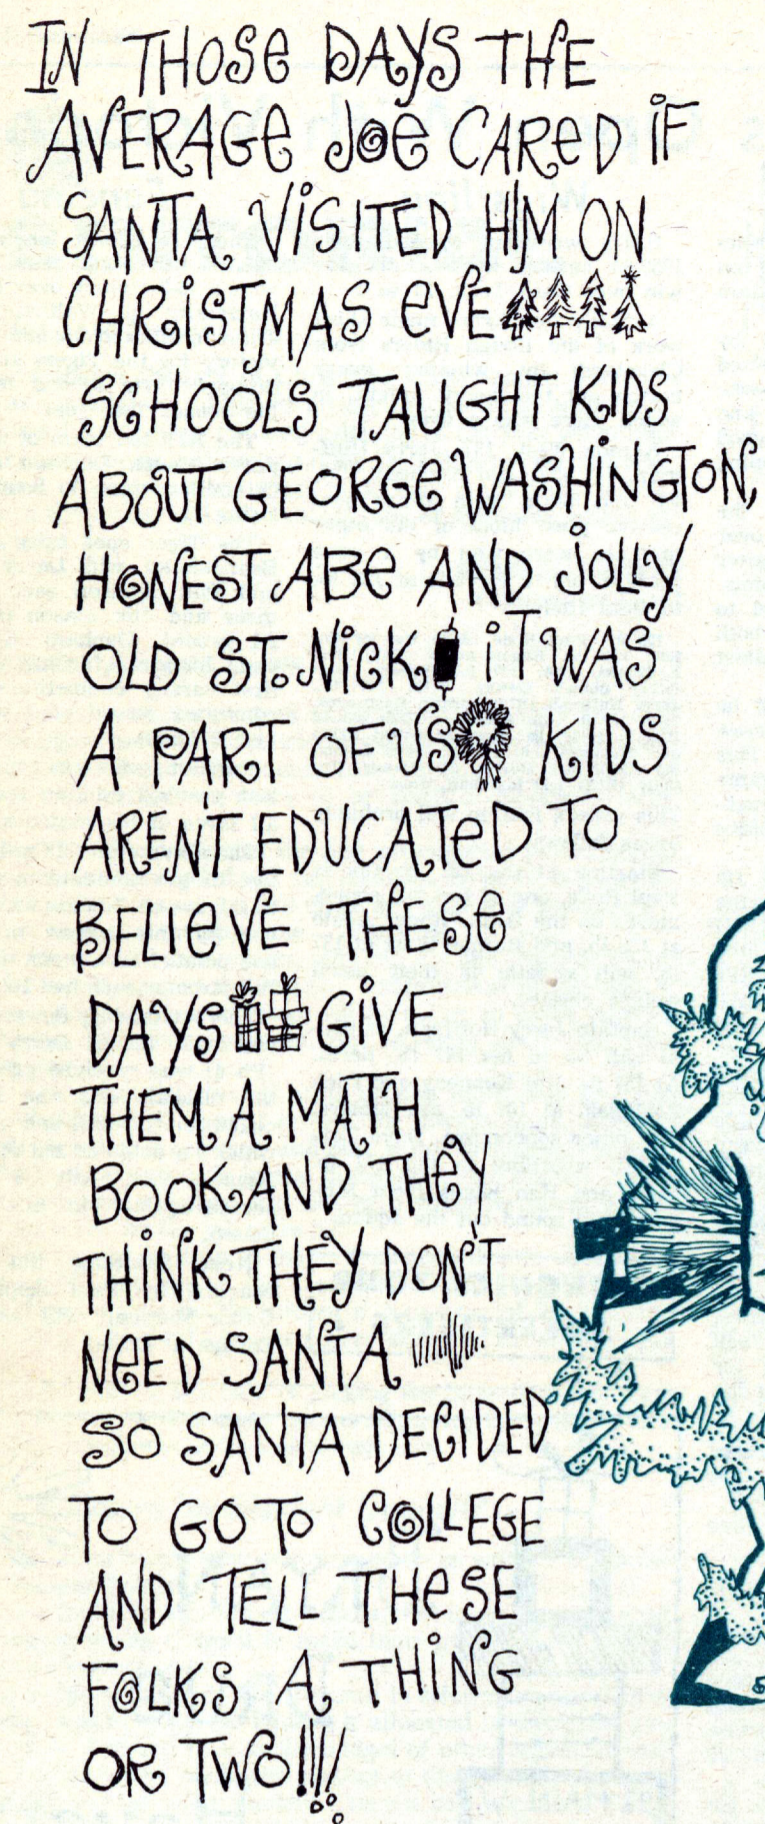 IN THOSE DAYS THE
AVERAGE JOE CARED IF
SANTA VISITED HIM ON
CHRISTMAS EVE
SCHOOLS TAUGHT KIDS
ABOUT GEORGE WASHINGTON,
HONEST ABE AND JOLLY
OLD ST. NICK IT WAS
A PART OF US KIDS
AREN'T EDUCATED TO
BELIEVE THESE
DAYS GIVE
THEM A MATH
BOOK AND THEY
THINK THEY DON'T
NEED SANTA
SO SANTA DECIDED
TO GO TO COLLEGE
AND TELL THESE
FOLKS A THING
OR TWO!!!!